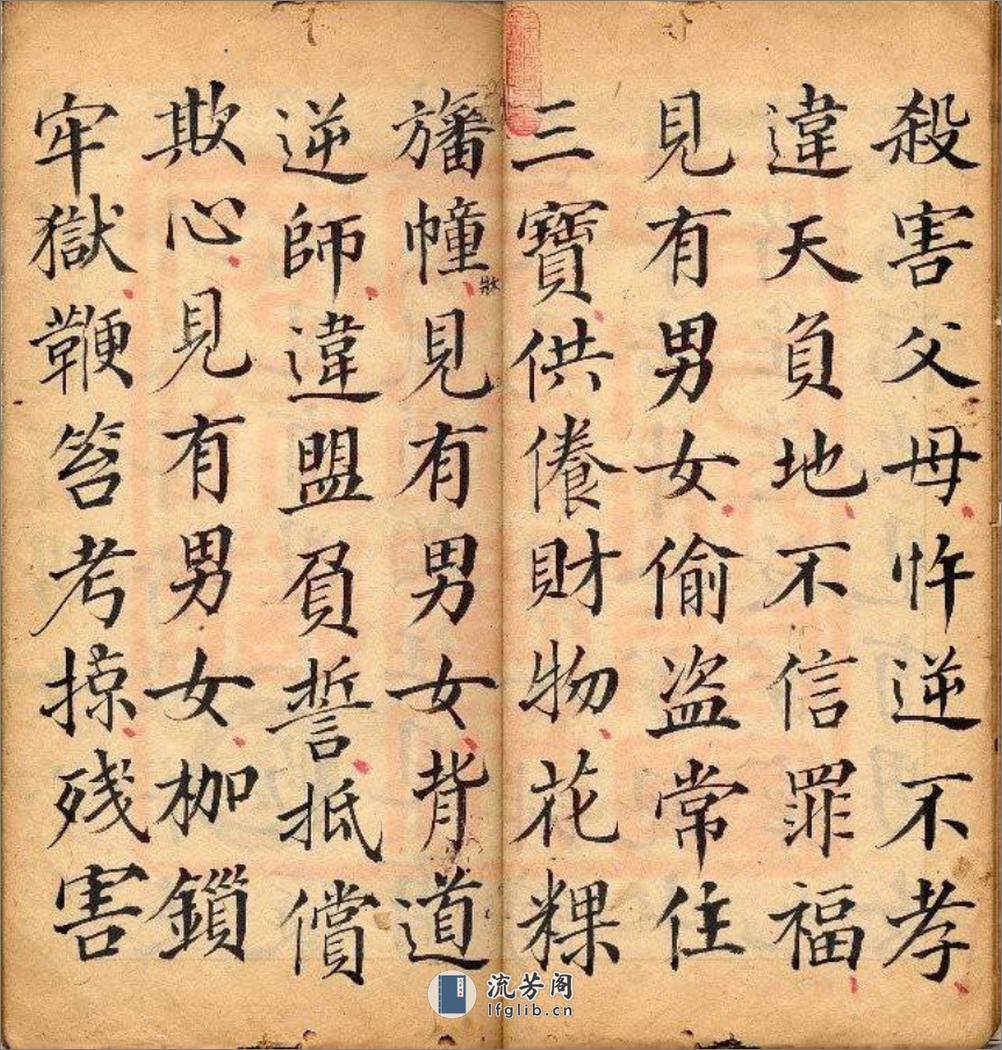 殺害父母忤逆不孝
違天負地不信罪福
見有男女偷盗常住
三寶供養財物花粿
旛幢見有男女背道
逆師違盟負誓抵償
欺心見有男女枷鎖
牢獄鞭笞考掠残害
流芳阁
lfglib.cn